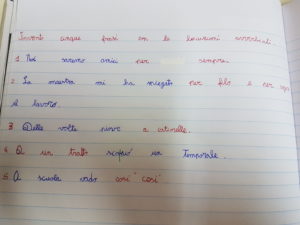 Invento cinque frasi con le locuzioni avverbiali.
1 Noi saremo amici per sempre.
2 La maestra mi ha spiegato per filo e per segno
il lavoro.
3 Delle volte piove a catinelle.
4 A un tratto scoppiò un temporale.
5 A scuola vado così così